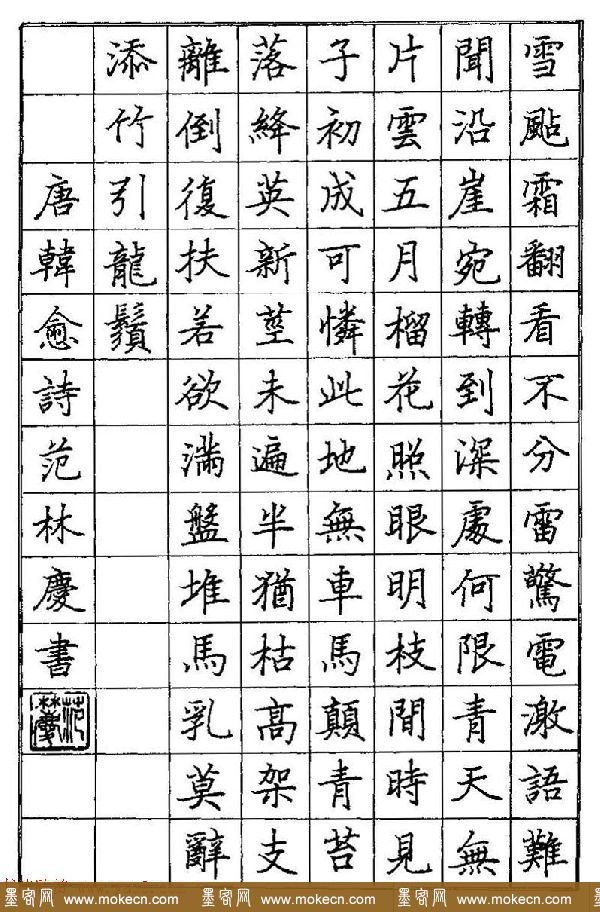 雪颭霜翻看不分雷驚電激語難
聞沿崖宛轉到深處何限青天無
片雲五月榴花照眼明枝間時見
子初成可憐此地無車馬顛青苔
落絳英新莖未遍半猶枯高架支
離倒復扶若欲滿盤堆馬乳莫辭
添竹引龍鬚
唐韓愈詩范林慶書
范林慶
墨客网 www.mokecn.com 墨客网 www.mokecn.com 墨客网 www.mokecn.com